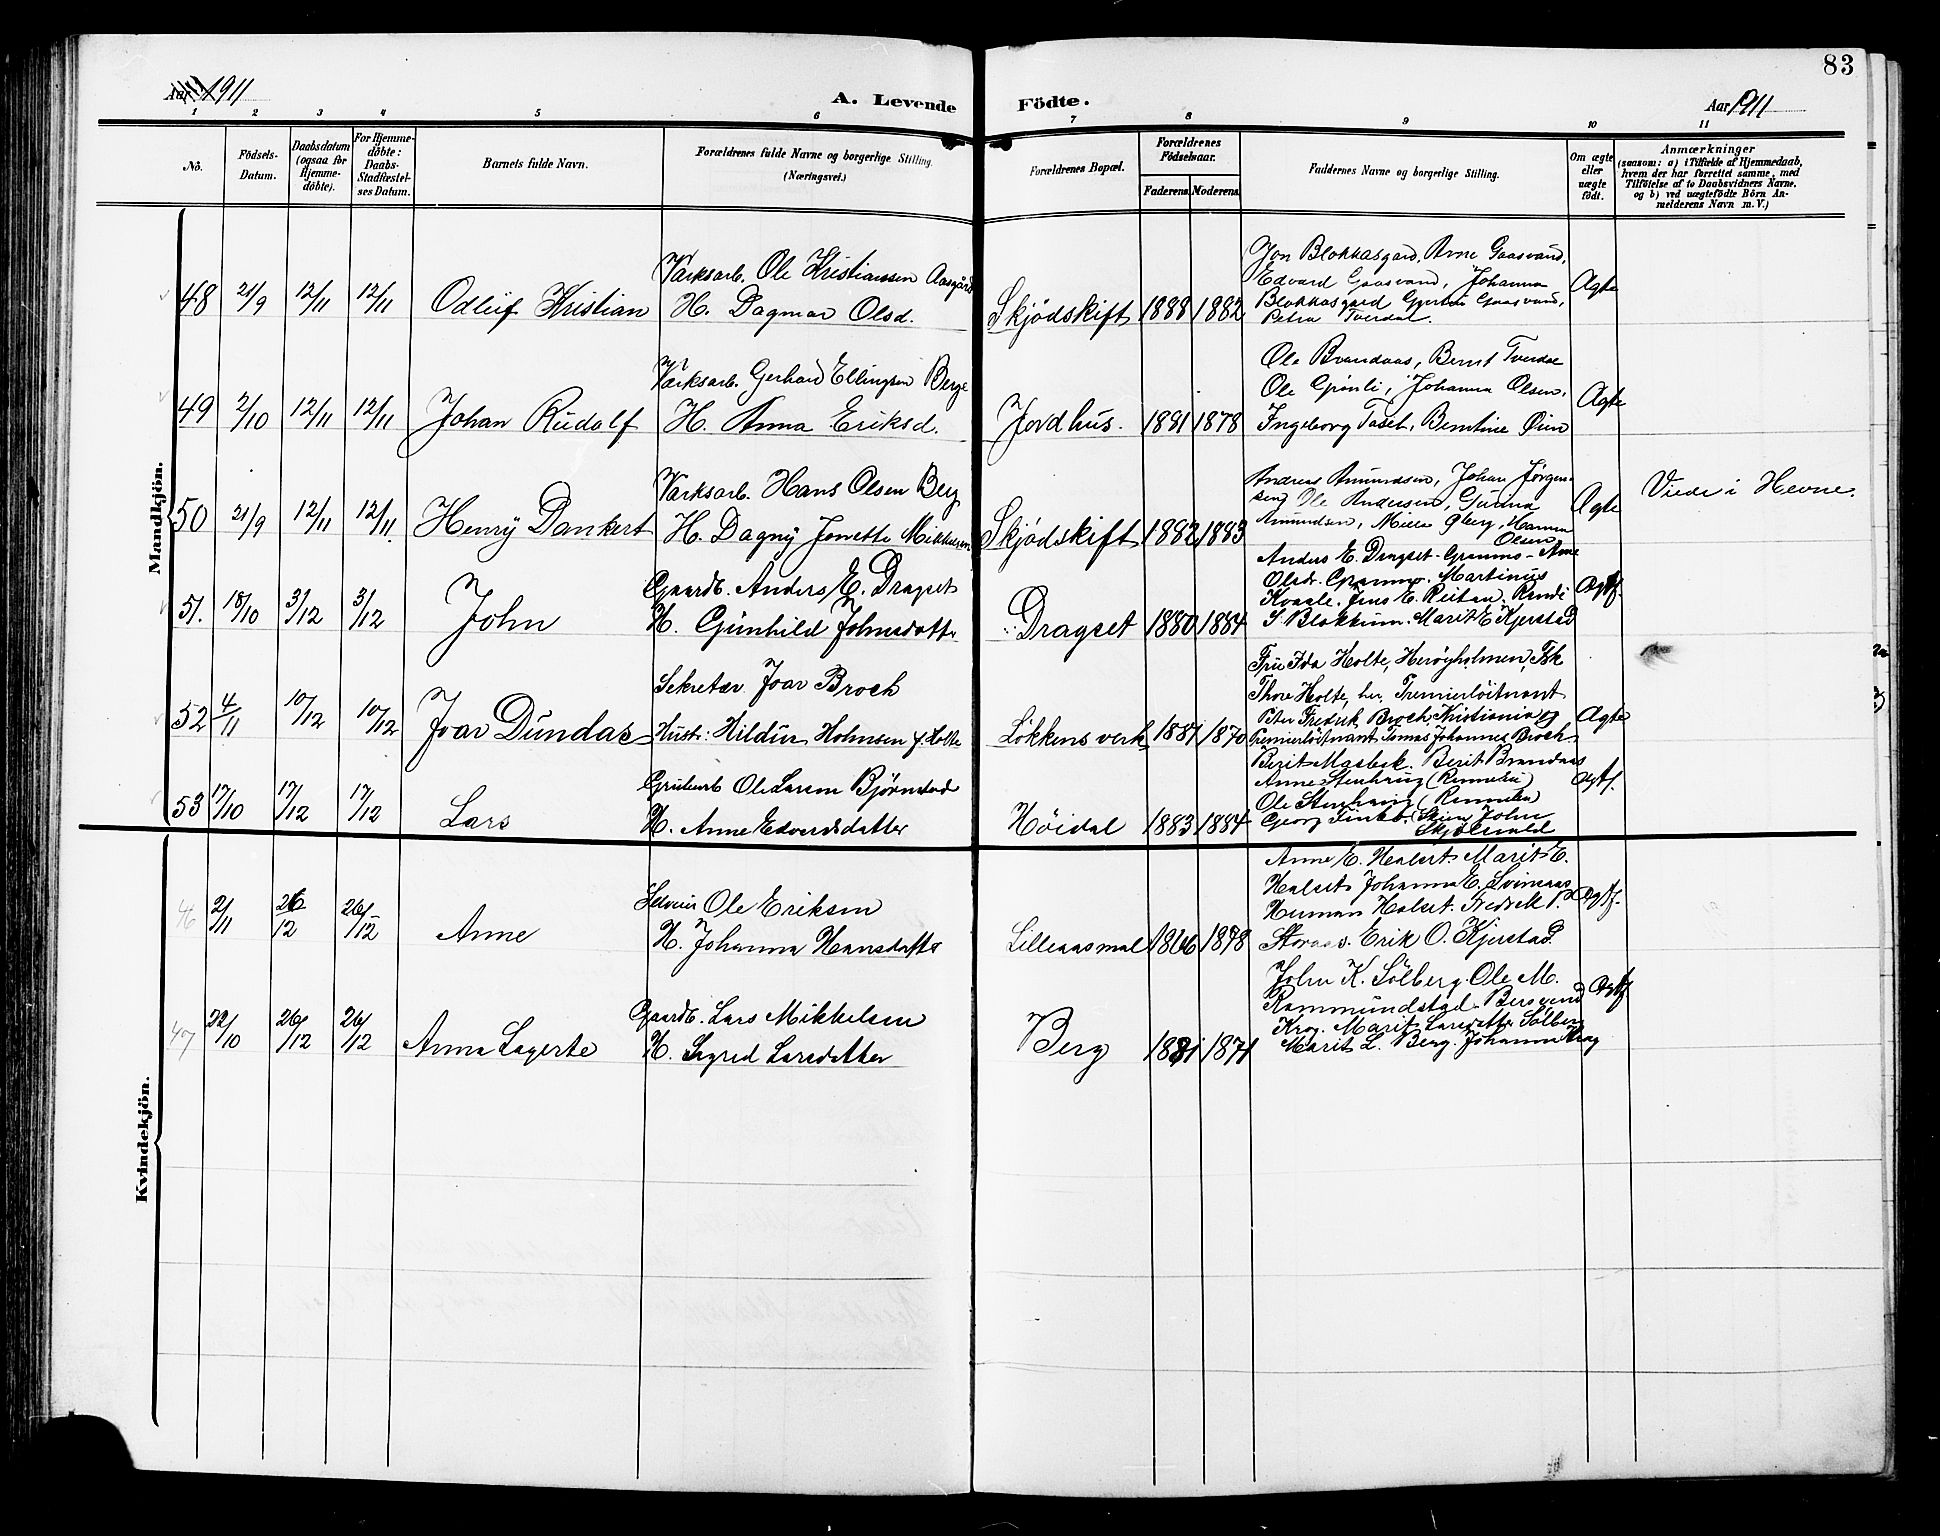 83
Aar 1911
A. Levende Födte.
Aar 1911
1 2 3 4 5 6 7 8 9 10 11
No.
Födsels-Datum.
Daabsdatum (ogsaa för Hjemme-döbte).
For Hjemme-döbte: Daabs-Stadfæstel-ses Datum.
Barnets fulde Navn.
Forældrenes fulde Navne og borgerlige Stilling. (Næringsvei.)
Forældrenes Bopæl.
Forældrenes Födselsaar.
Faderens. Moderens.
Faddernes Navne og borgerlige Stilling.
Om ægte eller uægte födt.
Anmærkninger
(saasom: a) i Tilfælde af Hjemmedaab,
hvem der har forrettet samme, med
Tilföielse af to Daabsvidners Navne,
og b) ved uægtefödte Börn An-
melderens Navn m. V.)
Mandkjön.
48 21/9 12/11 12/11 Odleif Kristian
Værksarb. Ole Kristianssen Aasgård
H. Dagmar Olsd.
Skjödskift 1888 1882
Jon Blokkasgard, Arne Gaasvand,
Edvard Gaasvand, Johanna
Blokkasgard Gjertru Gaasvand,
Petra Tverdal.
Ægte
49 2/10 12/11 12/11 Johan Rudolf
Værksarb. Gerhard Ellingsen Berge
H. Anna Eriksd.
Jordhus. 1881 1878
Ole Brandaas, Bernt Tverdal
Ole Grönli, Johanna Olsen,
Ingeborg Taset, Berntine Øien
Ægte
50 21/9 12/11 12/11. Henry Dankert
Værksarb. Hans Olsen Berg
H. Dagny Jonette Mikkelsen
Skjödskift 1882 1883
Andreas Amundsen, Johan Jørgen-
sen, Ole Andersen, Gurina
Amundsen, Milla Øberg, Hanna
Olsen
Ægte
Viede i Hevne.
51. 18/10 3/12 3/12 John
Gaardb. Anders E. Dragset
H. Gunhild Johnsdatter
Dragset 1880 1884
Anders E. Dragset. Gramo - Arne
Olsdr. Gramo. Martinus
Kvaale. Jens E. Reitan. Randi
S. Blokkum. Marit E Kjerstad
Ægtf.
52 4/11 10/12 10/12 Joar Dundas
Sekretær Joar Broch
Hustr: Hildur Holmsen f. Holte
Lökkens verk 1881 1870
Frue Ida Holte, Herøyholmen, Frk
Thore Holte, her, Premierlöitnant
Peter Fredrik Broch, Kristiania og
Premierlöitnant Tomas Johannes Broch.
Ægte
53 17/10 17/12 17/12 Lars
Grubearb Ole Larsen Bjørnstad
H. Anne Edvardsdatter
Höidal 1883 1884
Berit Masbek. Berit Brandaas
Anne Stenhaug (Rennebu)
Ole Stenhaug (Rennebu)
Georg (Skien) John
Skjölsvold
Ægtf.
Kvindekjön.
46 2/11 26/12 26/12 Anne
Selveier Ole Eriksen
H. Johanna Hansdatter
Lilleaasmal 1866 1878
Anne E. Halset. Marit E.
Halset. Johanna E. Svinaas
Herman Halset. Fredrik P.
Storaas. Erik O. Kjerstad.
Ægtf.
47 22/10 26/12 26/12 Anna Lagerte
Gaardb. Lars Mikkelsen
H. Sigrid Larsdatter
Berg 1881 1871
John K. Sölberg. Ole M.
Rammundstad. Bersvend
Krog. Marit Larsdatter Sölberg
Marit L. Berg. Johanna Krog
Ægtf.